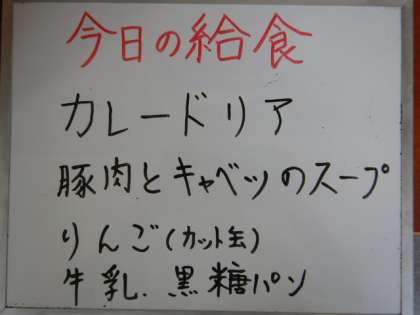 今日の給食
カレードリア
豚肉とキャベツのスープ
りんご(カット缶)
牛乳.黒糖パン